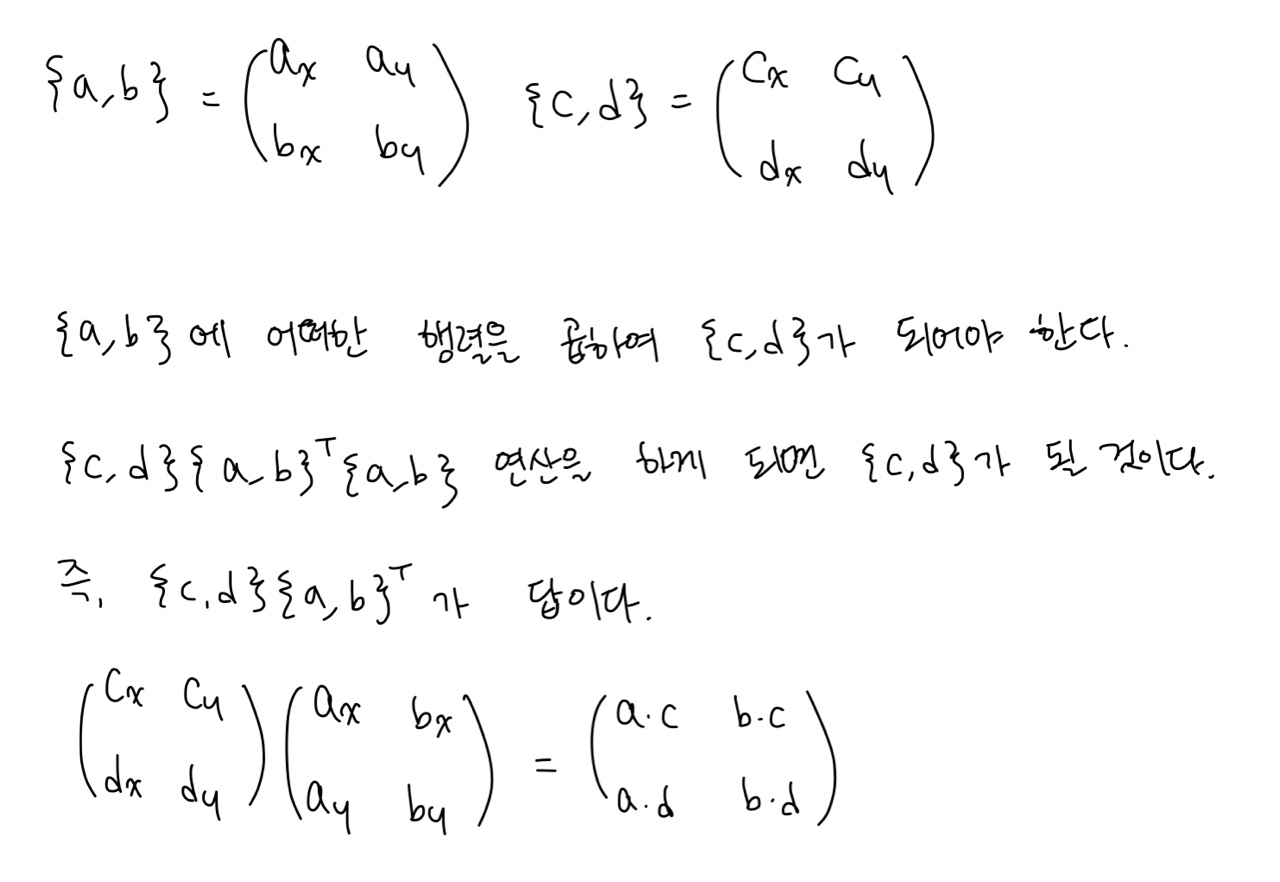 {a,b} = (ax ay  {c,d} = (cx cy
bx by)  dx dy)
{a,b}에 어떠한 행렬을 곱하여 {c,d}가 되어야 한다.
{c,d}{a,b}ᵀ{a,b} 연산을 하게 되면 {c,d}가 될 것이다.
즉, {c,d}{a,b}ᵀ가 답이다.
(cx cy  (ax bx  = (a·c b·c
dx dy)  ay by)  a·d b·d)